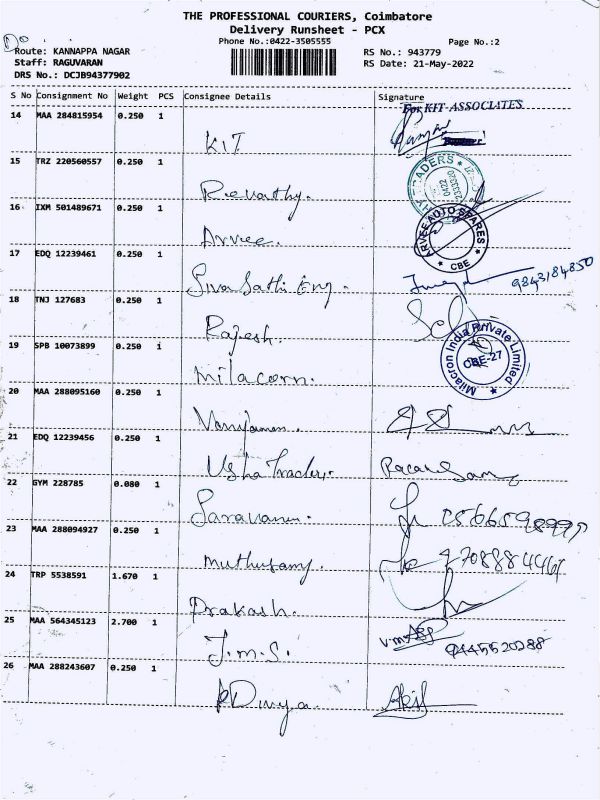 THE PROFESSIONAL COURIERS, Coimbatore
Delivery Runsheet - PCX
Phone No.:0422-3505555
Page No.:2
Route: KANNAPPA NAGAR
RS No.: 943779
Staff: RAGUVARAN
RS Date: 21-May-2022
DRS No.: DCJB94377902
S No Consignment No Weight PCS Consignee Details Signature
For KIT-ASSOCIATES
14 MAA 284815954 0.250 1
KIT
15 TRZ 220560557 0.250 1
Revathy.
TRADERS
0422
16 IXM 501489671 0.250 1
Arvee.
ARVEE AUTO SPARES
CBE
17 EDQ 12239461 0.250 1
Siva Sathi Eng. 9843184850
18 TNJ 127683 0.250 1
Rajesh.
19 SPB 10073899 0.250 1
Milacorn.
Milacron India Private Limited
CBE-27
20 MAA 288095160 0.250 1
21 EDQ 12239456 0.250 1
Usha
22 GYM 228785 0.080 1
Saravanan.
23 MAA 288094927 0.250 1
Muthusamy.
24 TRP 5538591 1.670 1
Prakash.
25 MAA 564345123 2.700 1
J.M.S. 9445520288
26 MAA 288243607 0.250 1
Divya. Akil